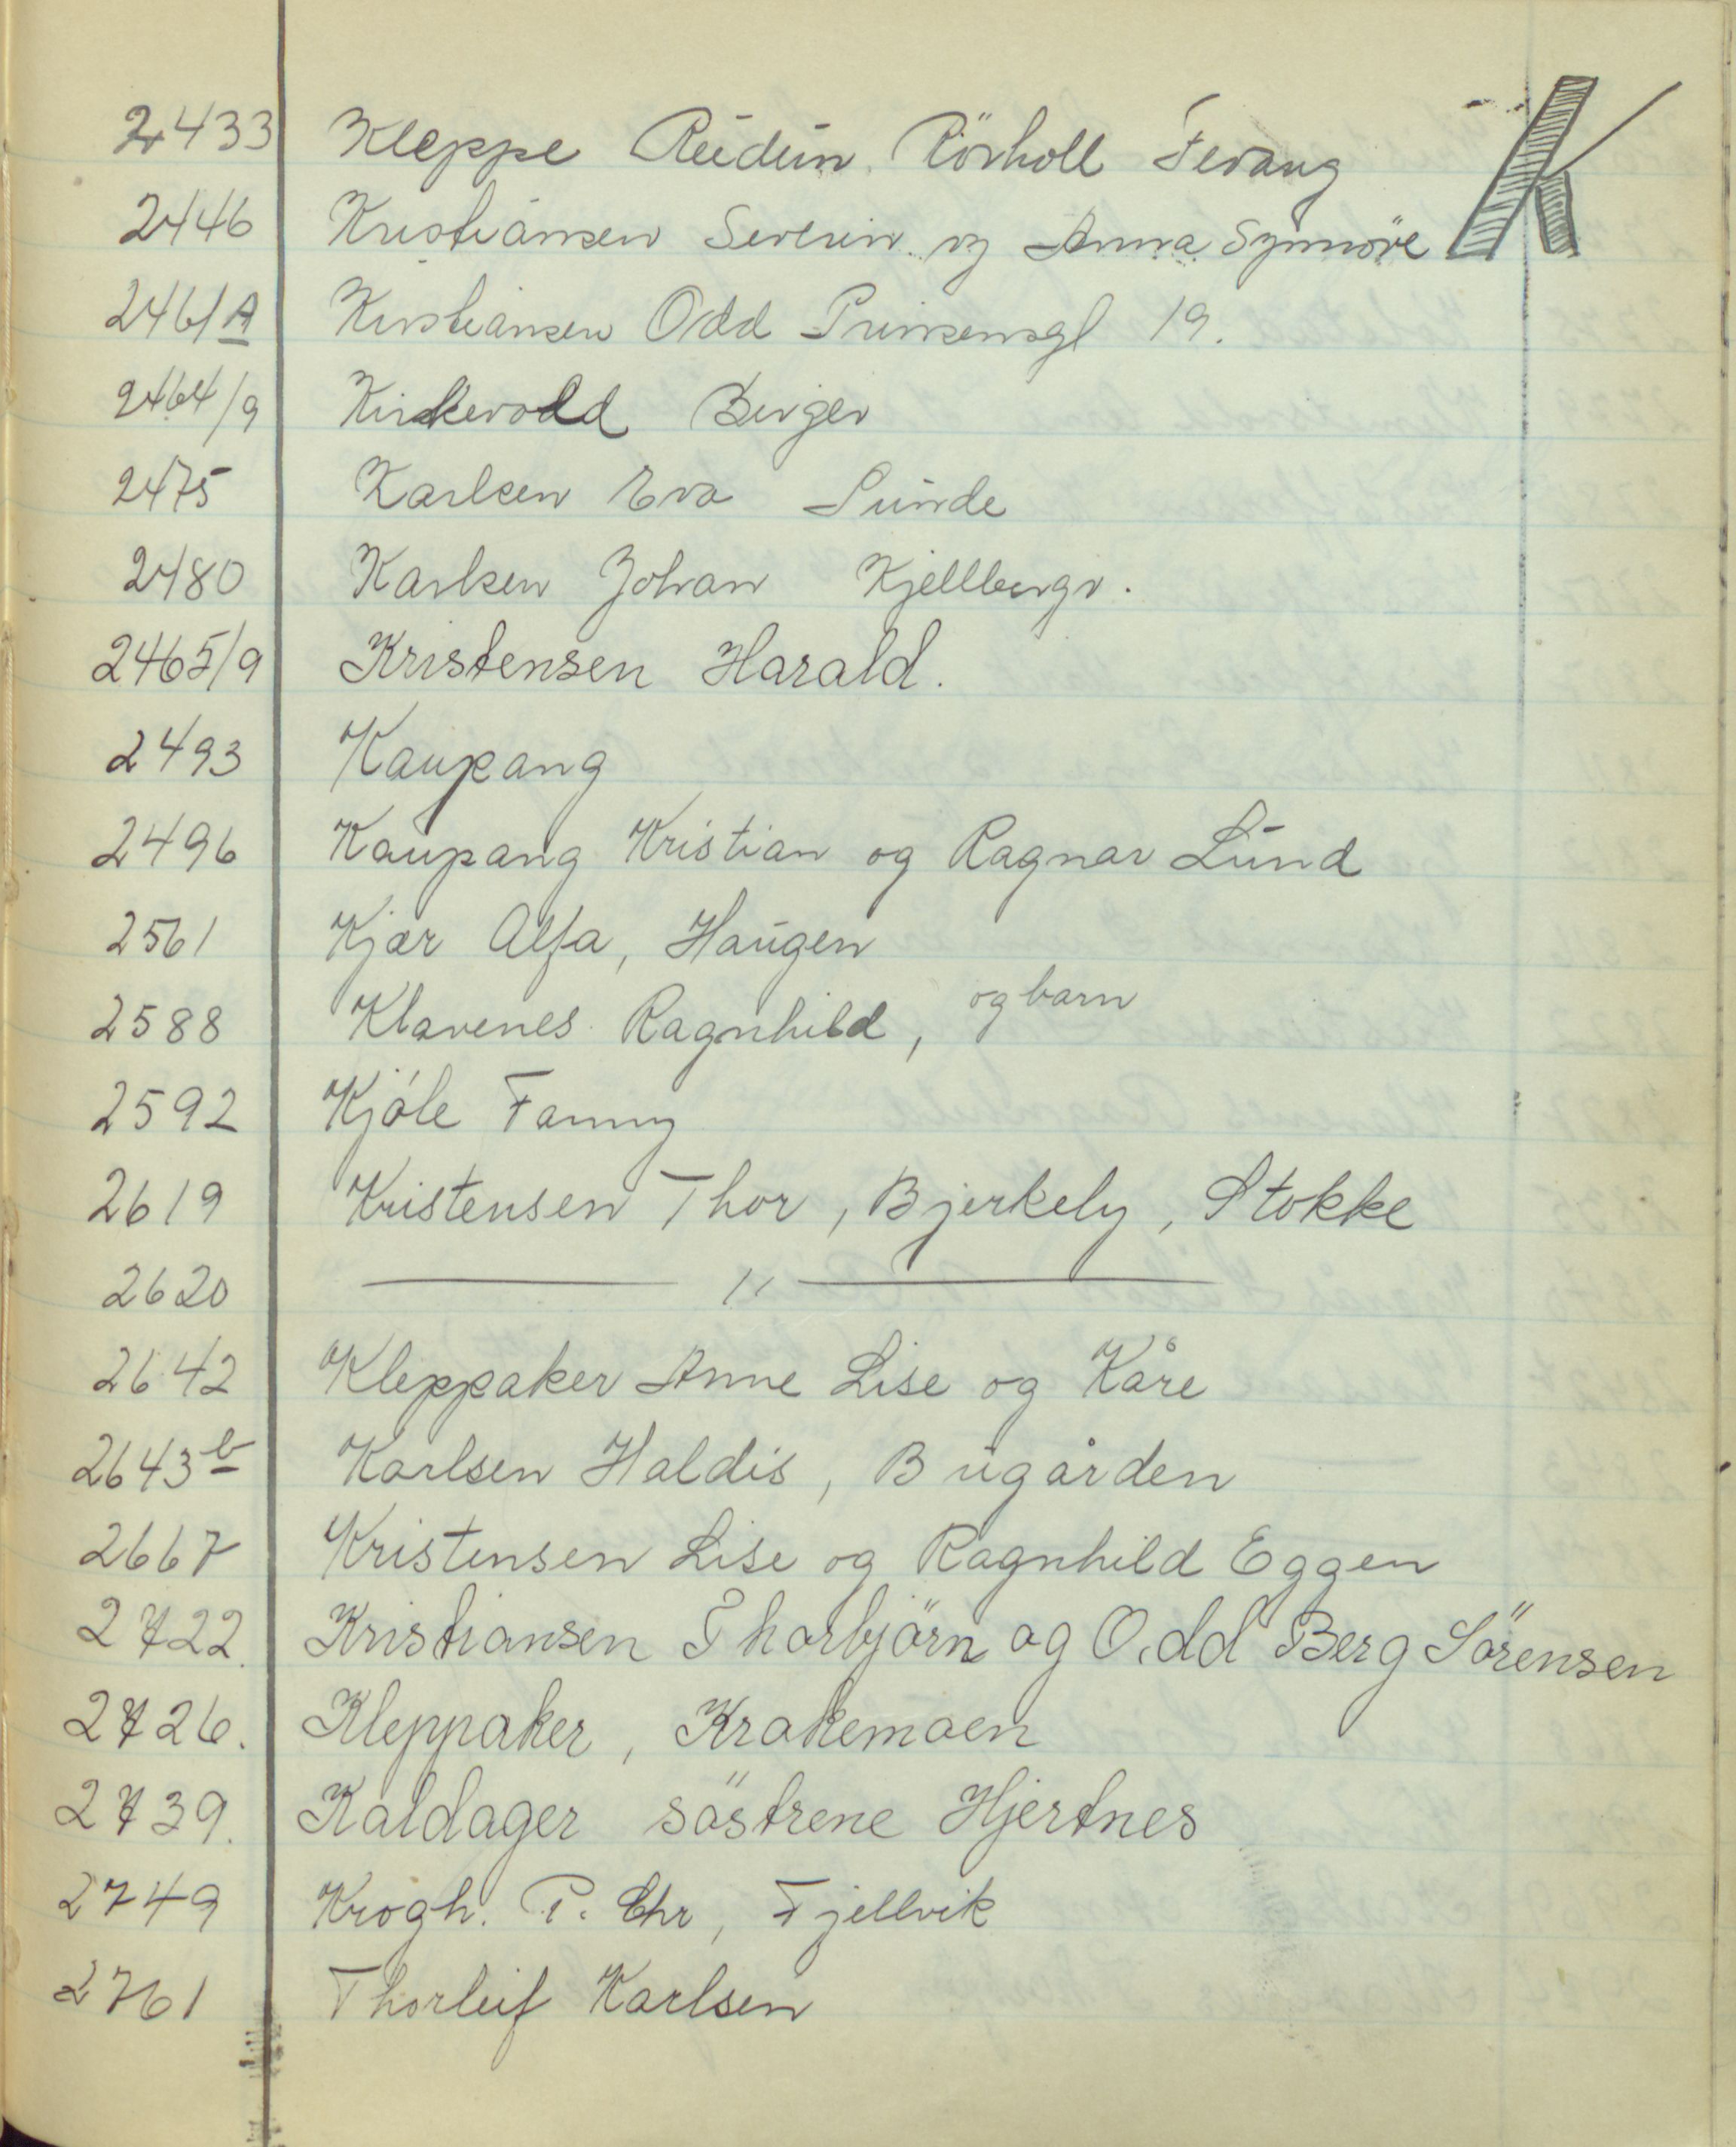 K
2433 Kleppe Reidun Rörkoll Tevang
2446 Kristiansen Severin og Anna Synnöve
2461A Kristiansen Odd Prinsensgt 19.
2464/9 Kirkevold Birger
2475 Karlsen Eva Sunde
2480 Karlsen Johan Kjellbergv.
2465/9 Kristensen Harald.
2493 Kaupang
2496 Kaupang Kristian og Ragnar Lund
2561 Kjær Alfa, Haugen
2588 Klavenes Ragnhild, og barn
2592 Kjöle Fanny
2619 Kristensen Thor, Bjerkely, Stokke
2620 — " —
2642 Kleppaker Anne Lise og Kåre
2643b Karlsen Haldis, Bugården
2667 Kristensen Lise og Ragnhild Eggen
2722. Kristiansen Thorbjörn og Odd Berg Sörensen
2726. Kleppaker, Krakemoen
2739. Kaldager söstrene Hjertnes
2749 Krogh. P. Chr, Fjellvik
2761 Thorleif Karlsen